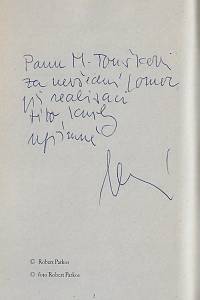 Panu M. Touškovi
za nevšední pomoc
při realizaci
této knihy
upřímně
© Robert Parkos
© foto Robert Parkos